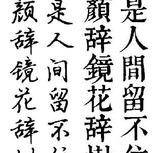 是人間留不住
顏辞鏡花辞樹
是人间留不住
颜辞镜花辞树